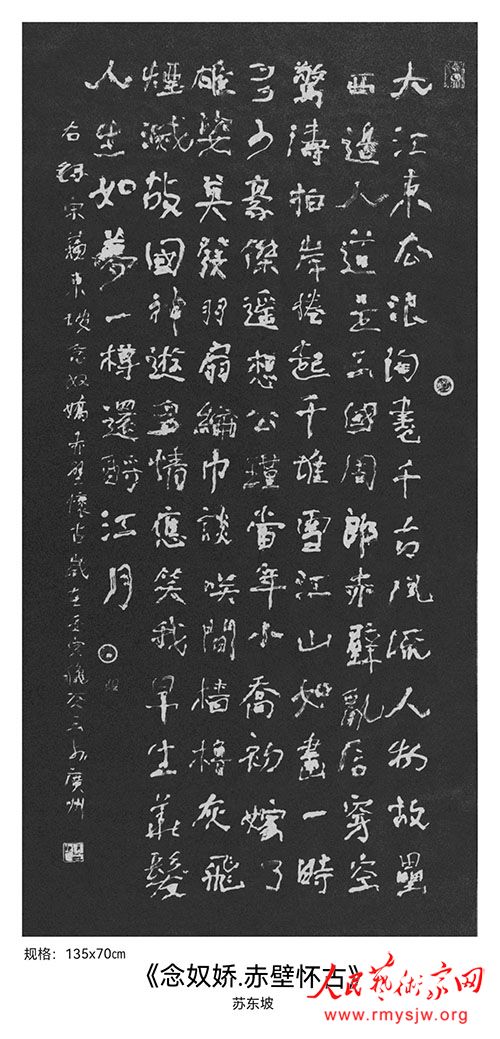 大江東去浪淘盡千古風流人物故壘
西邊人道是三國周郎赤壁亂石穿空
驚濤拍岸捲起千堆雪江山如畫一時
多少豪傑遥想公瑾當年小喬初嫁了
雄姿英發羽扇綸巾談笑間檣櫓灰飛
煙滅故國神遊多情應笑我早生華髮
人生如夢一樽還酹江月
右錄宋蘇東坡念奴嬌赤壁懷古歲在廣州
规格：135x70cm
《念奴娇.赤壁怀古》
苏东坡
人民藝術家网
www.rmysjw.org